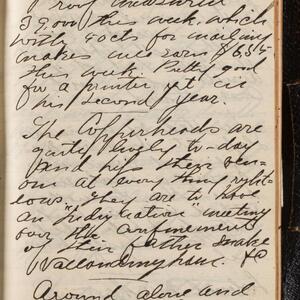 proof measured
I good this week, which
with 20cts for mailing
makes me earn $6,315
this week. Pretty good
for a printer yet in
his second year.
The Copperheads are
quite lively to-day
and hiss their ven-
om at every thing right-
eous. They are to have
an "indignation" meeting
over the confinement
of their father snake
Vallandingham. &c
Around alone and